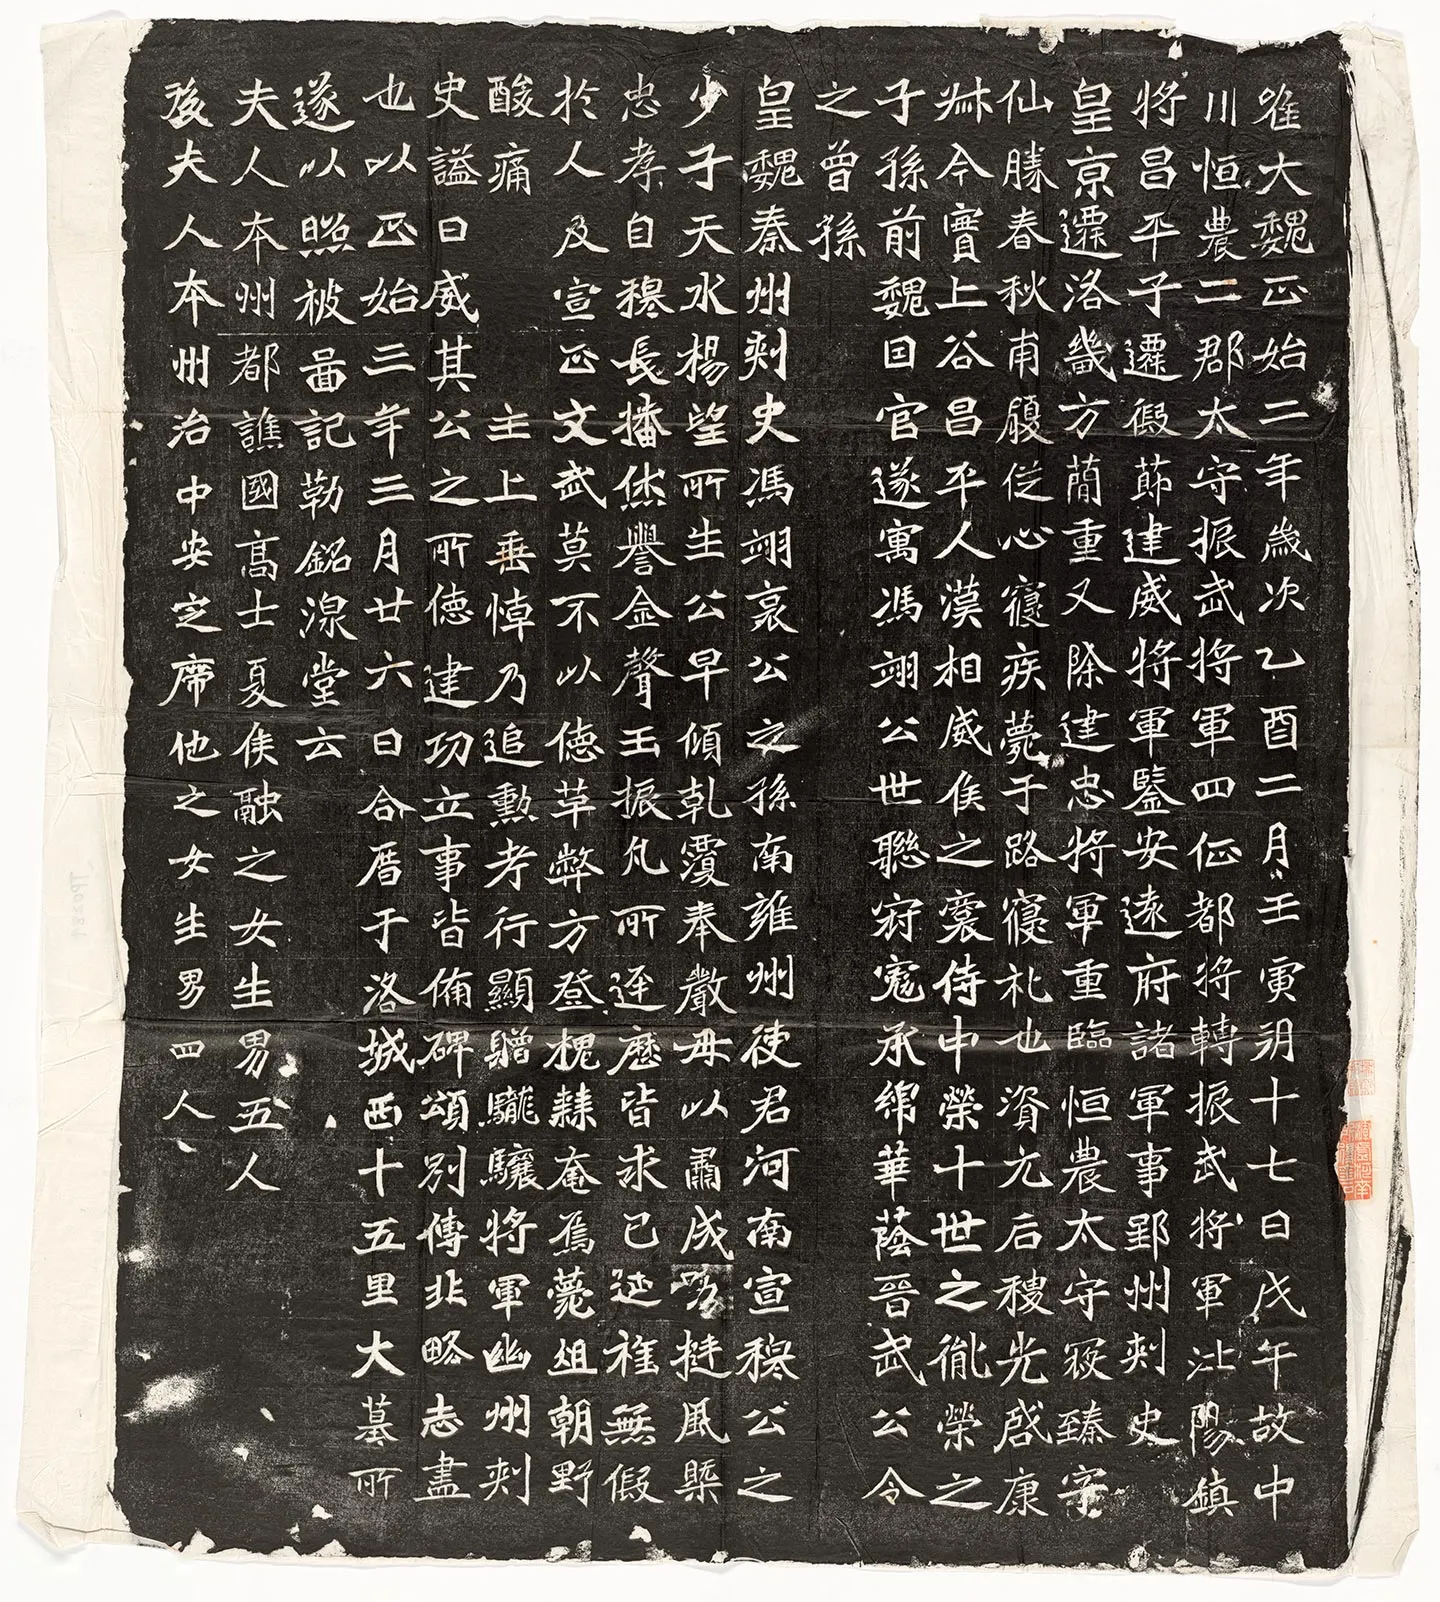 唯大魏正始二年歲次乙酉二月壬寅朔十七日戊午故中
川恒農二郡太守振武將軍四征都將轉振武將軍沘陽鎮
將昌平子遷假節建威將軍鑒安遠府諸軍事郢州刺史
皇京遷洛畿方簡重又除建忠將軍重臨恒農太守寇臻字
仙勝春秋甫履從心寢疾薨于路寢礼也資元后稷光啓康
叔今實上谷昌平人漢相威侯之裔侍中榮十世之胤榮之
子孫前魏因官遂寓馮翊公世聯冠冕承綿華蔭晉武公令
之曾孫
皇魏秦州刺史馮翊哀公之孫南雍州使君河南宣穆公之
少子天水楊望所生公早傾乾覆奉嚴母以肅成挺風槩
忠孝自穆長播休譽金聲玉振凡所逕歷皆求己延祚無假
於人及宣正文武莫不以德革弊方登槐棘奄焉薨徂朝野
酸痛　主上垂悼乃追勳考行顯贈龍驤將軍幽州刺
史謚曰威其公之所德建功立事皆備碑頌別傳非略志盡
也以正始三年三月廿六日合厝于洛城西十五里大墓所
遂以照被啚記勒銘深堂云
夫人本州都譙國高士夏侯融之女生男五人
後夫人本州治中安定席他之女生男四人